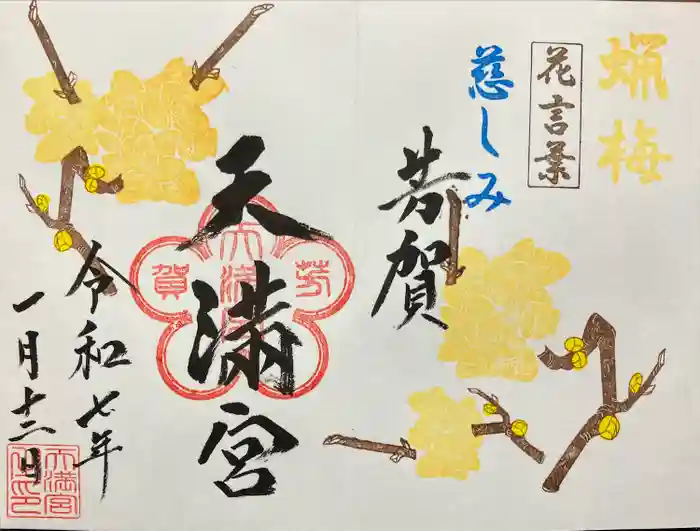 蝋梅
花言葉
慈しみ
芳賀
天満宮
令和七年
一月十二日
天満宮
芳
賀
天満宮